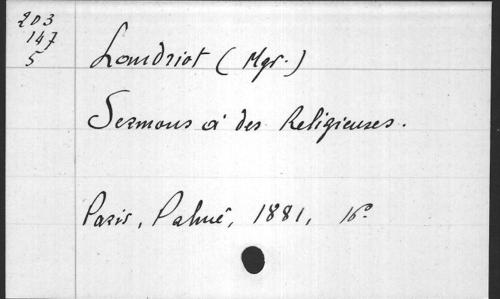 203
147
5
Landriot (Mgr.)
Sermons à des Religieuses.
Paris, Palmé, 1881, 16º